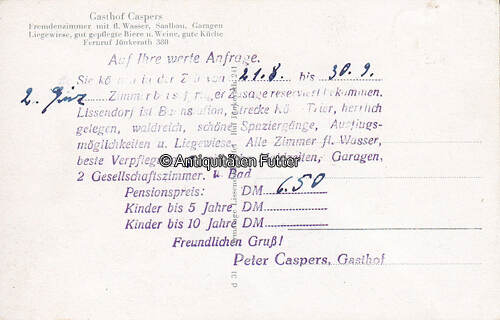 Gasthof Caspers
Fremdenzimmer mit fl. Wasser, Saalbau, Garagen
Liegewiese, gut gepflegte Biere u. Weine, gute Küche
Fernruf Jünkerath 388
Auf Ihre werte Anfrage.
Sie können in der Zeit von 21.8 bis 30.9.
2. Zimmer bei sof. Zusage reserviert bekommen.
Lissendorf ist Bahnstation, Strecke Köln Trier, herrlich
gelegen, waldreich, schöne Spaziergänge, Ausflugs-
möglichkeiten u. Liegewiese. Alle Zimmer fl. Wasser,
beste Verpflegung, Garagen,
2 Gesellschaftszimmer. u. Bad
Pensionspreis: DM 6.50
Kinder bis 5 Jahre DM
Kinder bis 10 Jahre DM
Freundlichen Gruß!
Peter Caspers, Gasthof
© Antiquitäten Futter